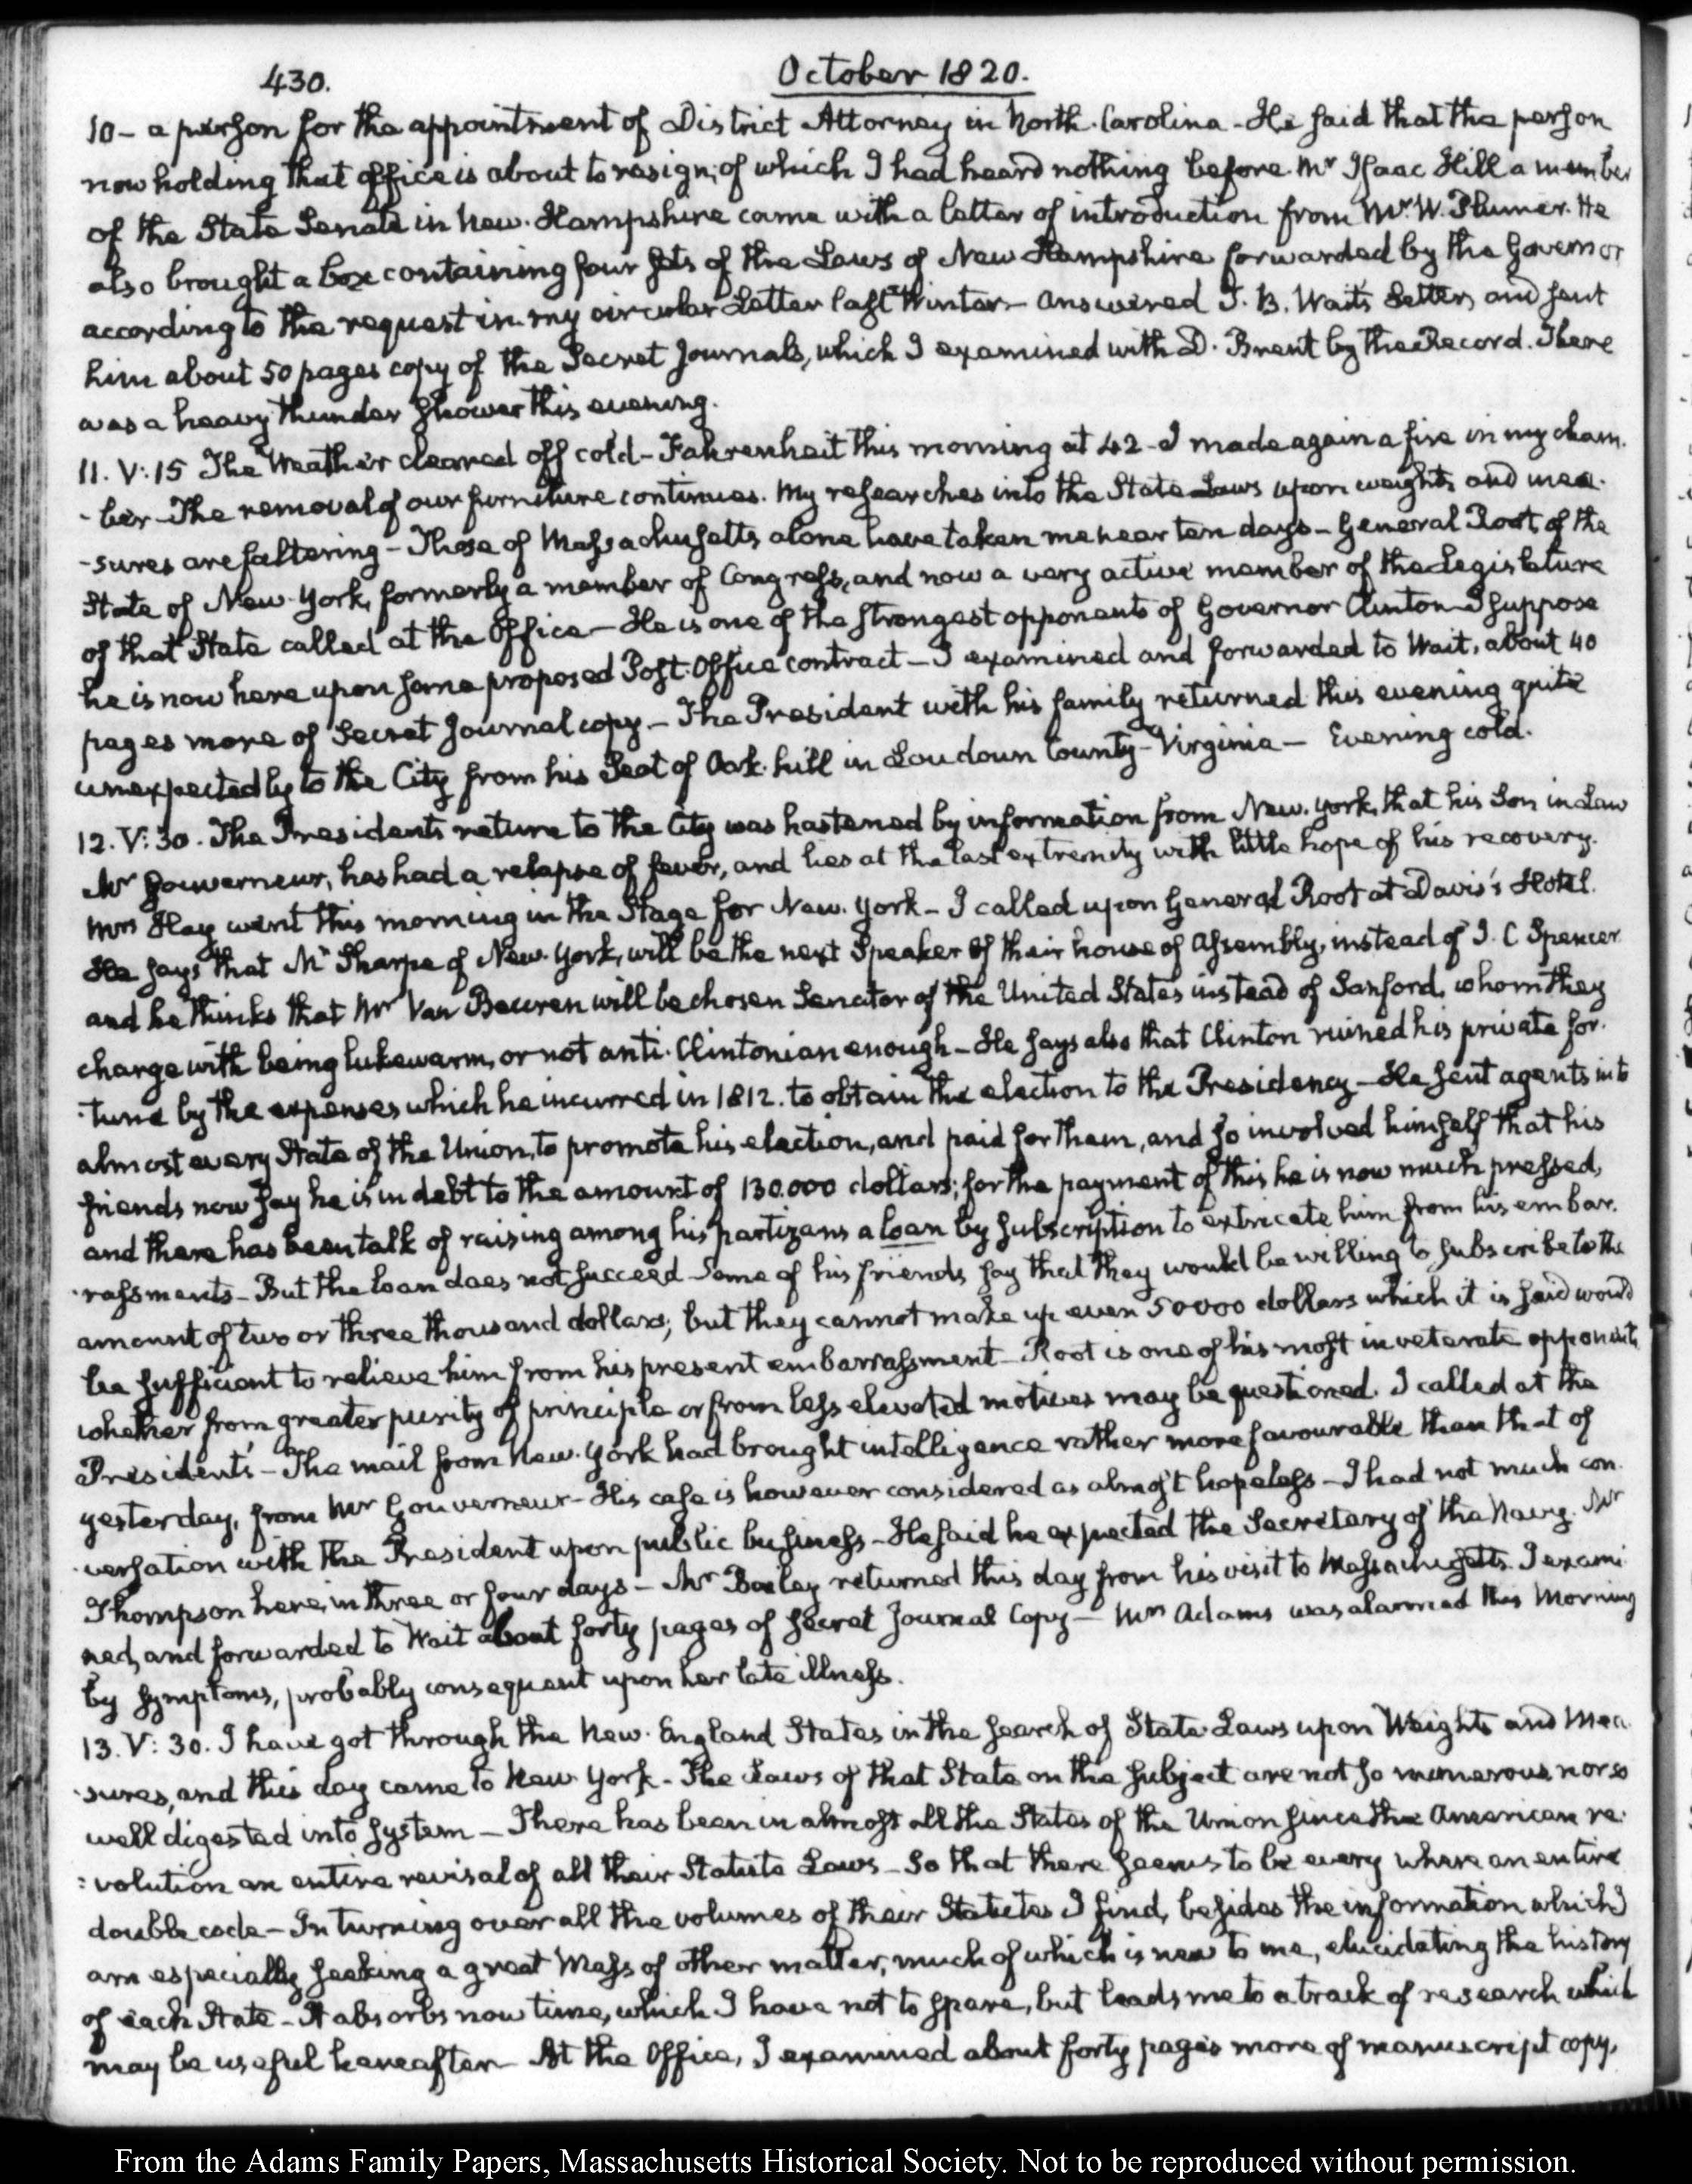 430. October 1820.
10 - a person for the appointment of District Attorney in North-Carolina - He said that the person
now holding that office is about to resign; of which I had heard nothing before. Mr Isaac Hill a member
of the State Senate in New-Hampshire came with a letter of introduction from Mr W. Plumer. He
also brought a box containing four sets of the Laws of New Hampshire forwarded by the Governor
according to the request in my circular Letter last Winter - Answered T. B. Wait's Letter, and sent
him about 50 pages copy of the Secret Journals, which I examined with D. Brent by the Record. There
was a heavy thunder shower this evening.
11. V:15 The Weather cleared off cold - Fahrenheit this morning at 42 - I made again a fire in my cham-
-ber - The removal of our furniture continues. My researches into the State Laws upon weights and mea-
-sures are faltering - Those of Massachusetts alone have taken me near ten days - General Root of the
State of New-York, formerly a member of Congress, and now a very active member of the Legislature
of that State called at the Office - He is one of the strongest opponents of Governor Clinton - I suppose
he is now here upon some proposed Post-Office contract - I examined and forwarded to Wait, about 40
pages more of Secret Journal copy - The President with his family returned this evening quite
unexpectedly to the City from his Seat of Oak-hill in Loudoun County - Virginia - Evening cold.
12. V:30. The President's return to the City was hastened by information from New-York, that his Son in Law
Mr Gouverneur, has had a relapse of fever, and lies at the last extremity with little hope of his recovery.
Mrs Hay went this morning in the Stage for New-York - I called upon General Root at Davis's Hotel.
He says that Mr Sharpe of New-York, will be the next Speaker of their house of Assembly, instead of J. C Spencer
and he thinks that Mr Van Beuren will be chosen Senator of the United States instead of Sanford, whom they
charge with being lukewarm, or not anti-Clintonian enough - He says also that Clinton ruined his private for-
-tune by the expenses which he incurred in 1812. to obtain the election to the Presidency - He sent agents into
almost every State of the Union, to promote his election, and paid for them, and so involved himself that his
friends now say he is in debt to the amount of 130.000 dollars; for the payment of this he is now much pressed,
and there has been talk of raising among his partizans a loan by subscription to extricate him from his embar-
-rassments - But the loan does not succeed - Some of his friends say that they would be willing to subscribe to the
amount of two or three thousand dollars; but they cannot make up even 50000 dollars which it is said would
be sufficient to relieve him from his present embarrassment - Root is one of his most inveterate opponents
whether from greater purity of principle or from less elevated motives may be questioned. I called at the
President's - The mail from New-York had brought intelligence rather more favourable than that of
yesterday, from Mr Gouverneur - His case is however considered as almost hopeless - I had not much con-
-versation with the President upon public business - He said he expected the Secretary of the Navy. Mr
Thompson here, in three or four days - Mr Bailey returned this day from his visit to Massachusetts. I exami-
ned, and forwarded to Wait about forty pages of Secret Journal Copy - Mrs Adams was alarmed this Morning
by symptoms, probably consequent upon her late illness.
13. V:30. I have got through the New-England States in the search of State Laws upon Weights and Mea-
-sures, and this day came to New York - The Laws of that State on the subject are not so numerous nor so
well digested into system - There has been in almost all the States of the Union since the American re-
:volution an entire revisal of all their Statute Laws - So that there seems to be every where an entire
double code - In turning over all the volumes of their Statutes I find, besides the information which I
am especially seeking a great Mass of other matter, much of which is new to me, elucidating the history
of each State - It absorbs now time, which I have not to spare, but leads me to a track of research which
may be useful hereafter - At the Office, I examined about forty pages more of manuscript copy,
From the Adams Family Papers, Massachusetts Historical Society. Not to be reproduced without permission.